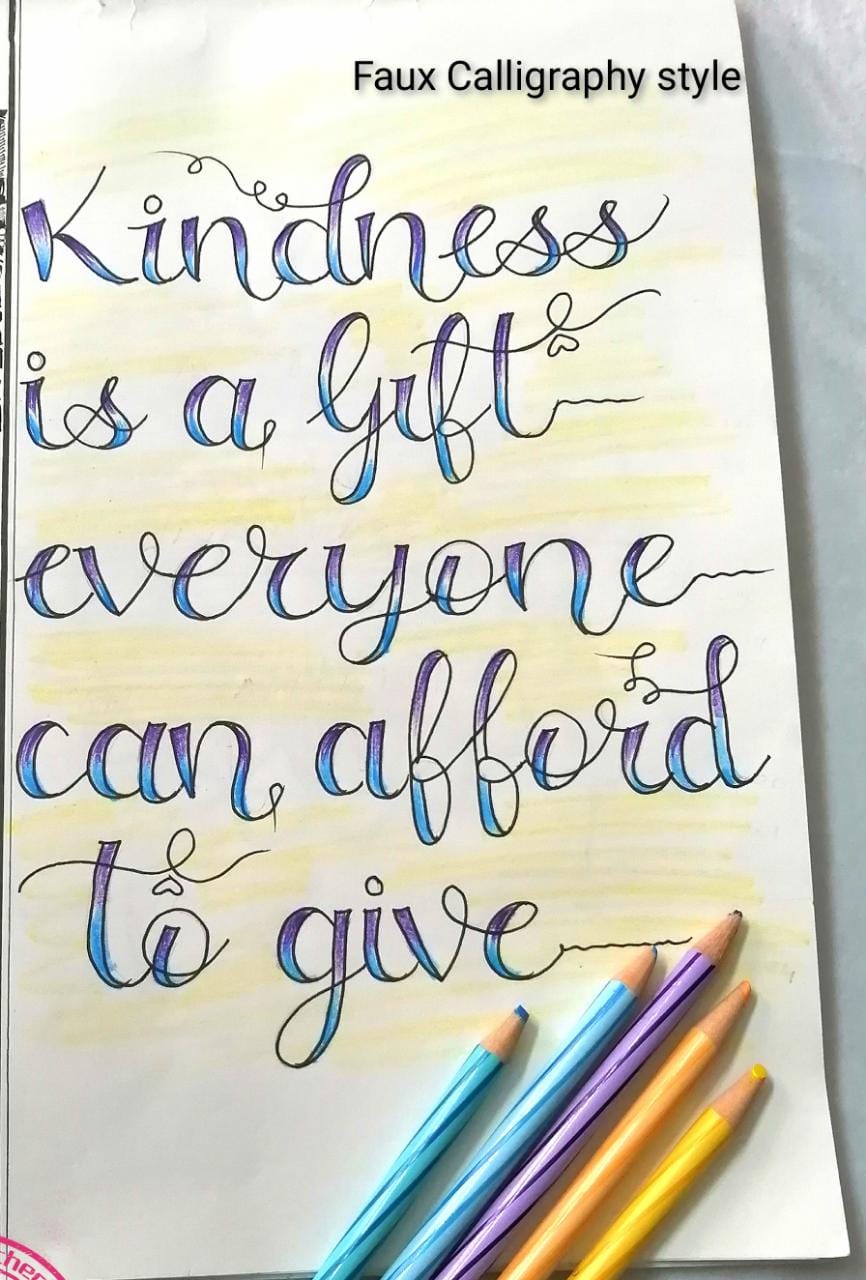 Faux Calligraphy style
Kindness
is a Gift
everyone
can afford
to give